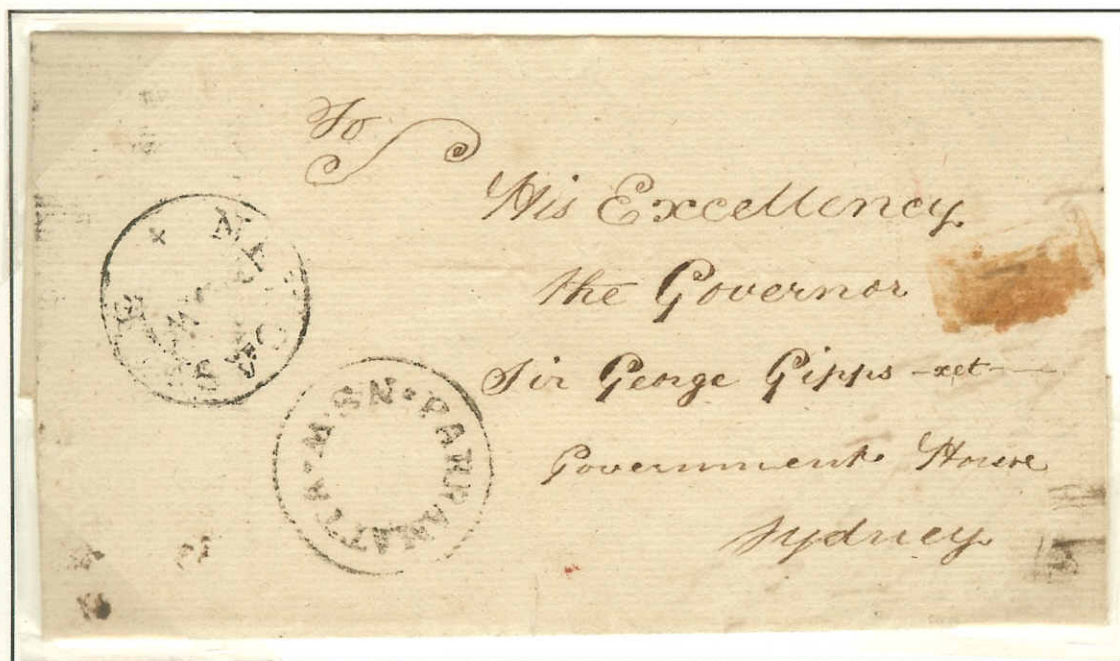 To
His Excellency
the Governor
Sir George Gipps
Government House
Sydney
NEWCASTLE
PARRAMATTA N·S·W